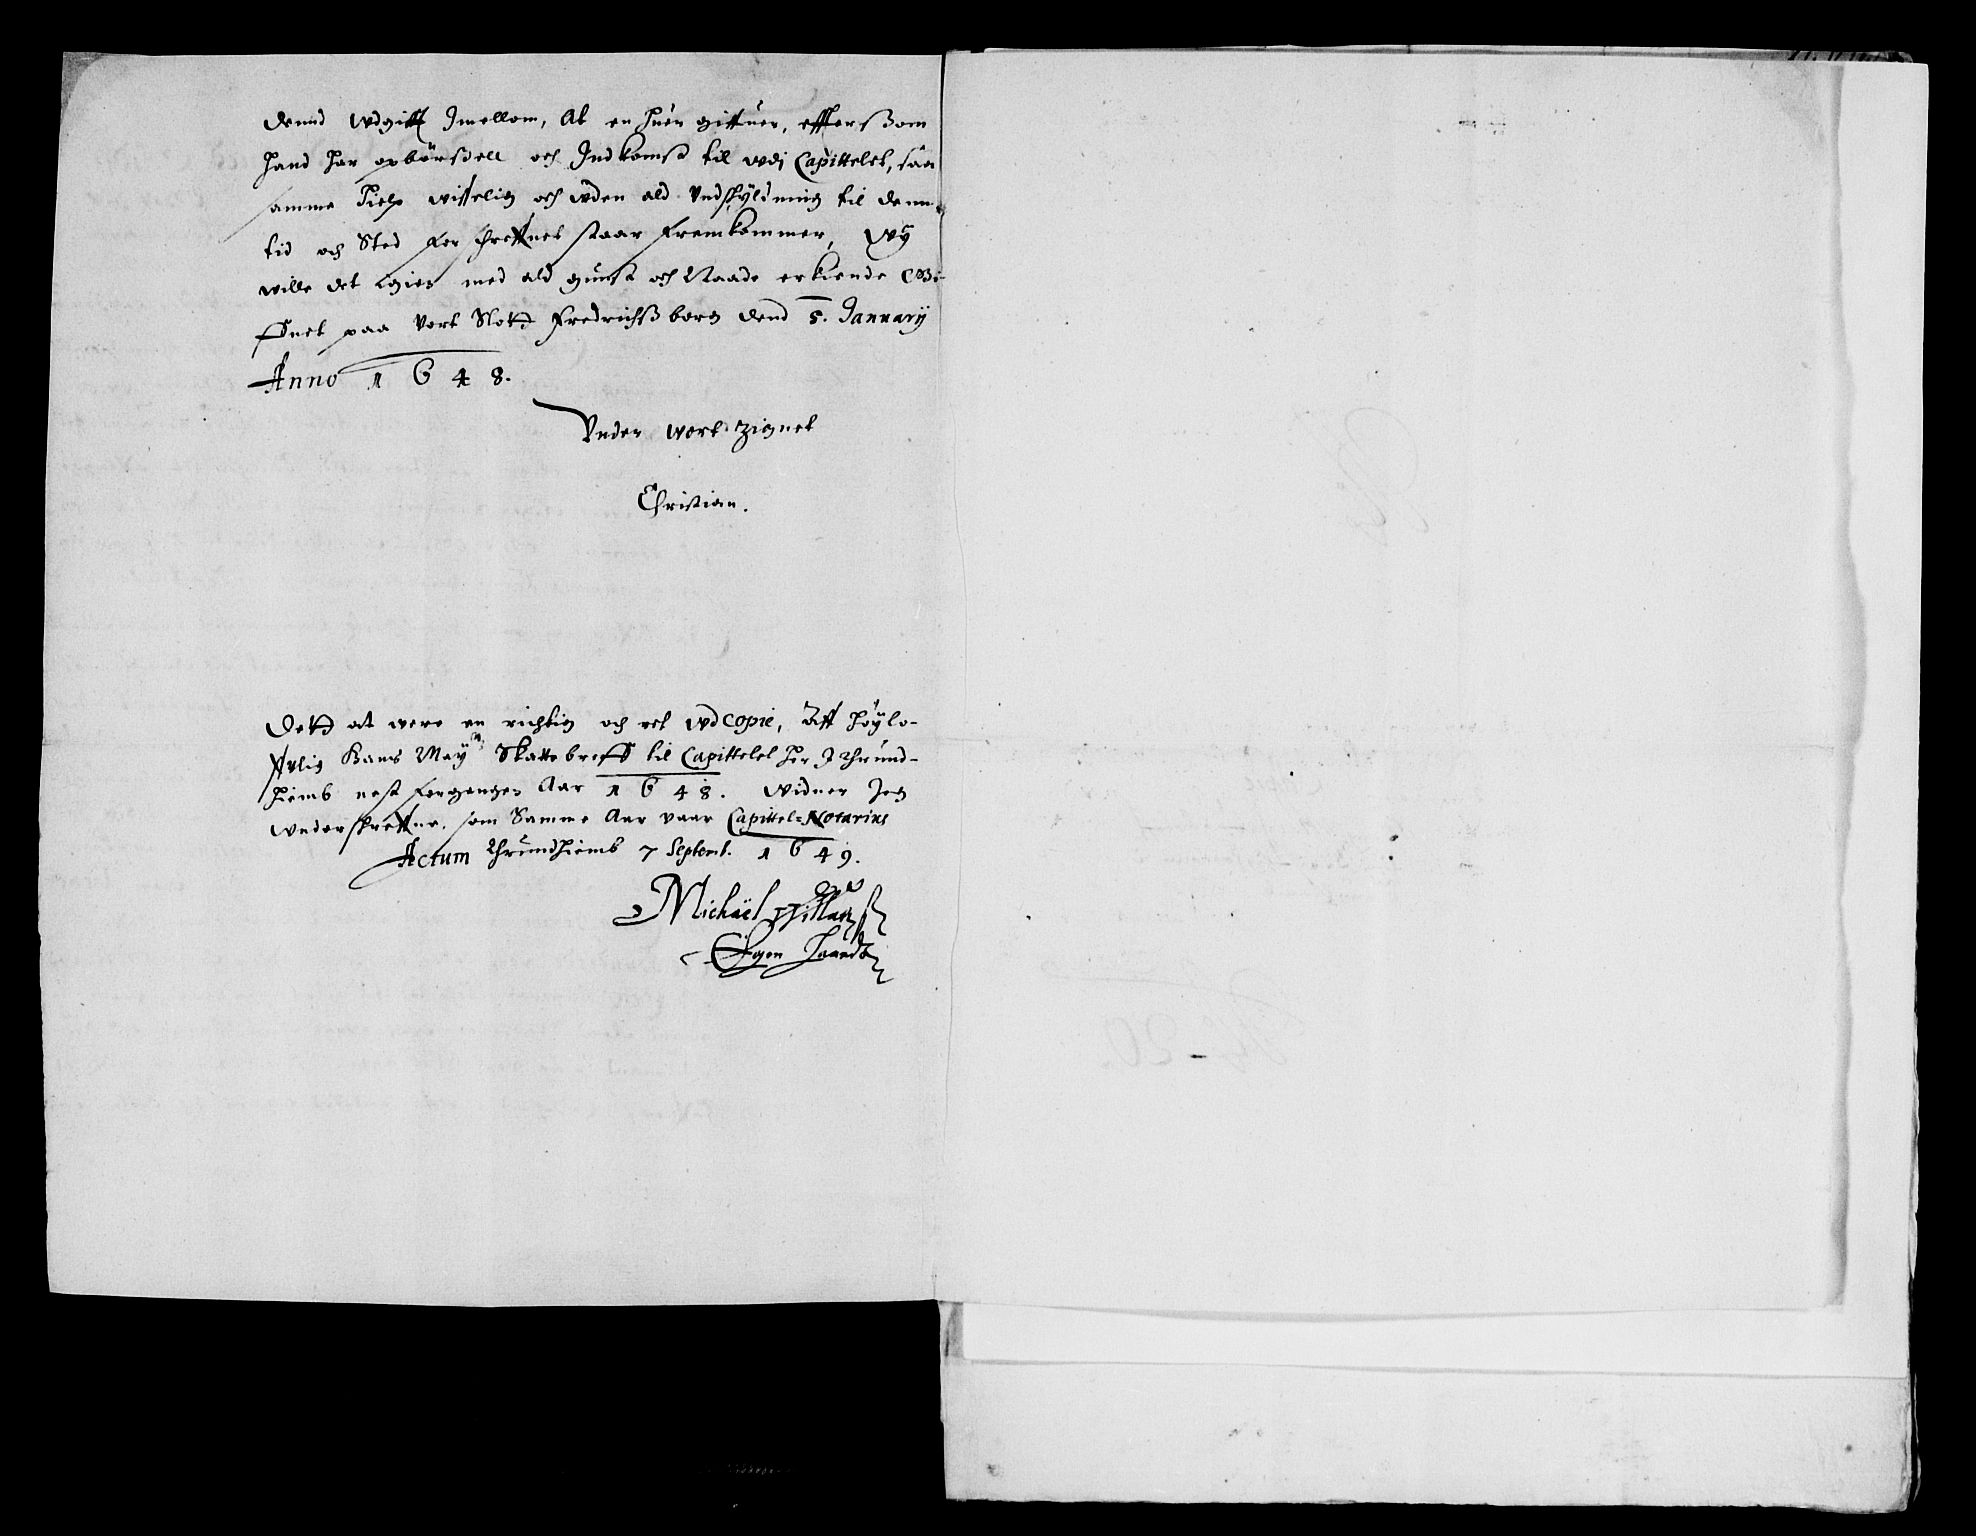 dennd Wdgifft Jmellom, At en huer gifftuer, effterßom
hand har opbörßell och Jndkomst til wdj Capittelet, saa
samme Hielp wisselig och wden ald Vndskÿldning til denn
tid och Sted forschreffnet staar fremkommer, Wÿ
wille det igien med ald gunst och Naade erkiende Gi-
ffuet paa Vort Slott Fredrichßborg dend 5. Januarij
Anno 1648.
Vnder wort Zignet
Christian.
Dette at were en richtig och ret Wdcopie, Aff Höÿlo-
fflig Kans Maÿts Skattebreff til Capittelet her J Thrund-
hiemb nest forgangen Aar 1648. Widner Jeg
Wnderskreffne, som Samme Aar vaar Capittel-Notarius
Actum Thrundhiemb 7 Septemb. 1649.
Michaël
Egen Haandt